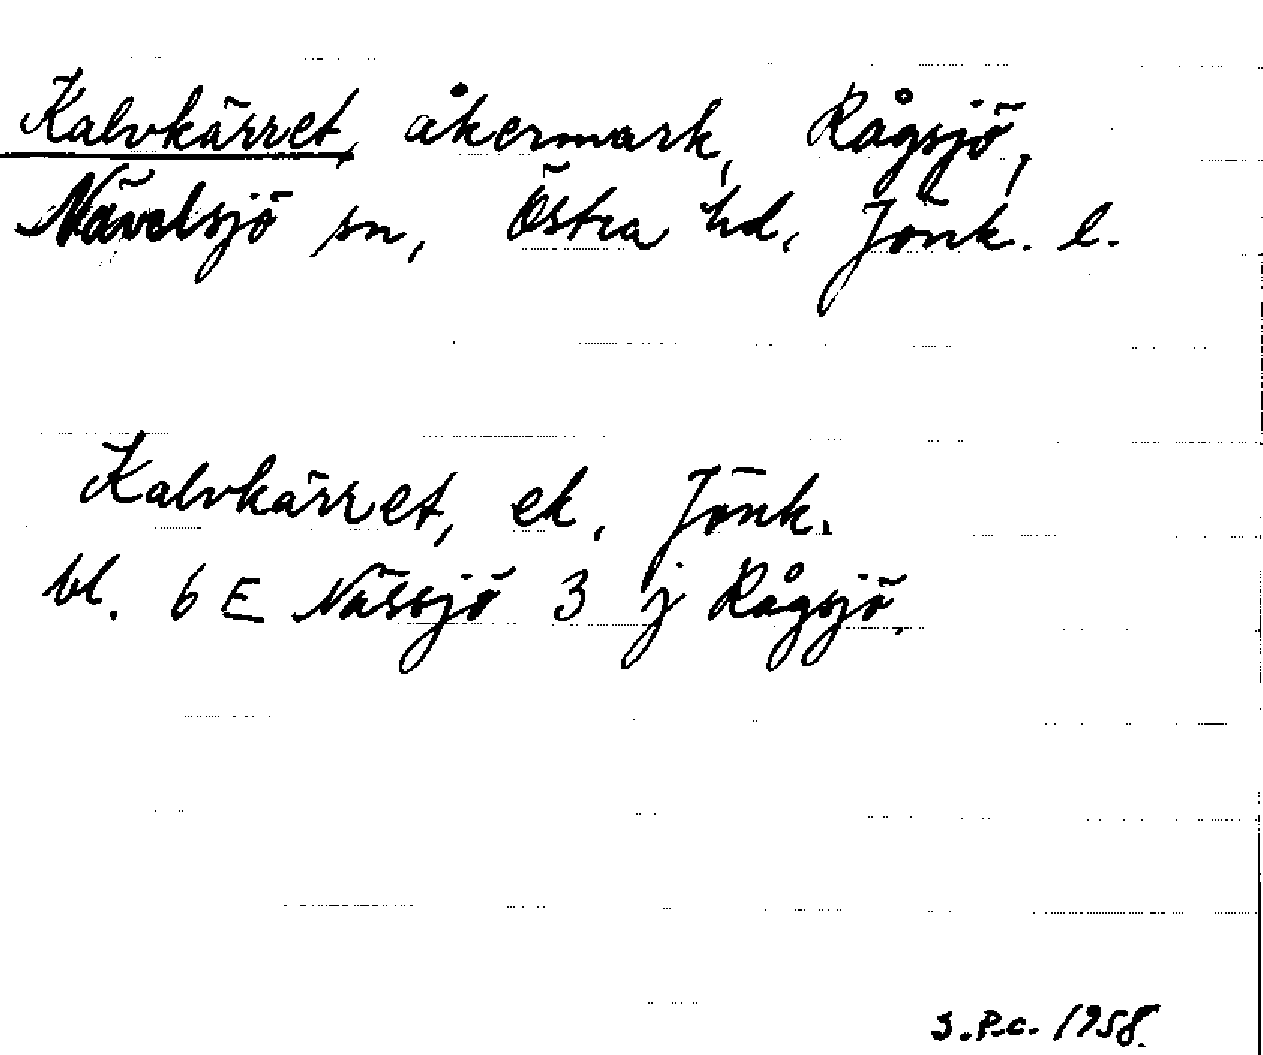 Kalvkärret, åkermark, Rågsjö,
Nävelsjö sn, Östra hd, Jönk. l.
Kalvkärret, ek, Jönk.
bl. 6 E Nässjö 3 j Rågsjö.
S.P.C. 1958.